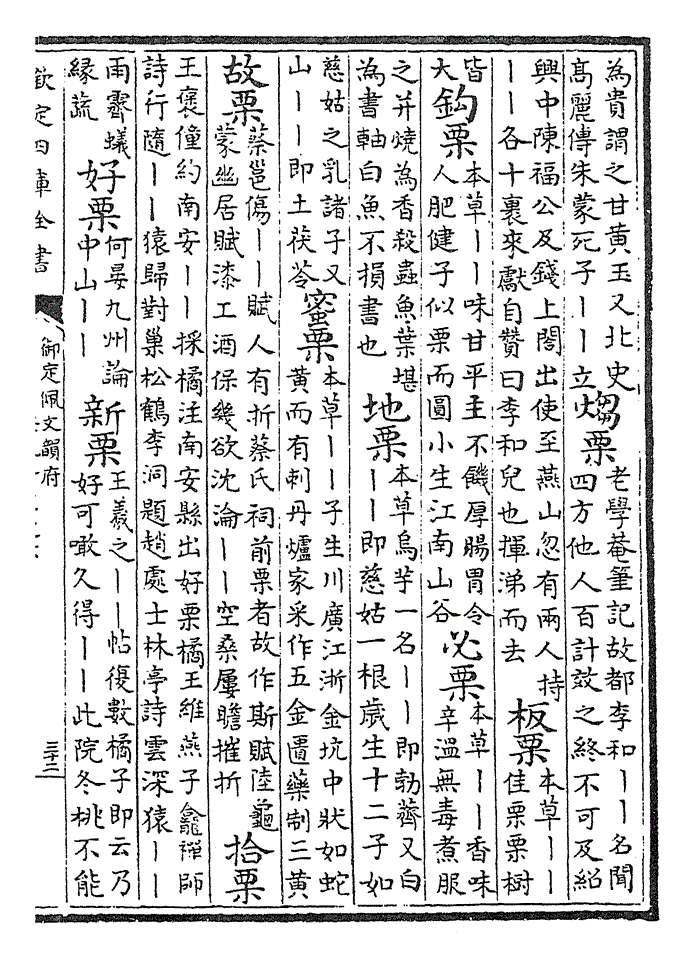 為貴謂之甘黃玉又北史
髙麗傳朱蒙死子丨丨立
煼栗
老學菴筆記故都李和丨丨名聞
四方他人百計效之終不可及紹
興中陳福公及錢上閤出使至燕山忽有兩人持
丨丨各十裹來獻自贊曰李和兒也揮涕而去
板栗
本草丨丨
佳栗栗樹
皆
大
鈎栗
本草丨丨味甘平主不饑厚腸胃令
人肥健子似栗而圓小生江南山谷
必栗
本草丨丨香味
辛溫無毒煮服
之并燒為香殺蟲魚葉堪
為書軸白魚不損書也
地栗
本草烏芋一名丨丨即勃薺又白
丨丨即慈姑一根歲生十二子如
慈姑之乳諸子又
山丨丨即土茯苓
蜜栗
本草丨丨子生川廣江浙金坑中狀如蛇
黃而有刺丹爐家采作五金匱藥制三黃
故栗
蔡邕傷丨丨賦人有折蔡氏祠前栗者故作斯賦陸龜
蒙幽居賦漆工酒保幾欲沈淪丨丨空桑屢瞻摧折
拾栗
王褒僮約南安丨丨採橘注南安縣出好栗橘王維燕子龕禪師
詩行隨丨丨猿歸對巢松鶴李洞題趙處士林亭詩雲深猿丨丨
雨霽蟻
緣蔬
好栗
何晏九州論
中山丨丨
新栗
王羲之丨丨帖復數橘子即云乃
好可噉久得丨丨此院冬桃不能
欽定四庫全書
御定佩文韻府
三十二